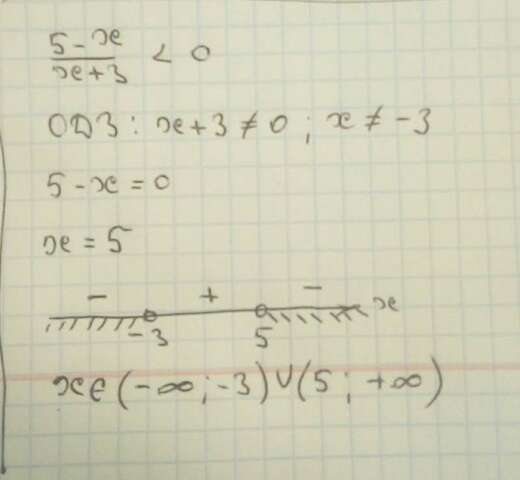 5-x/x+3 < 0
ОДЗ: x+3≠0; x≠-3
5-x=0
x=5
- + -
-3 5 x
x∈(-∞;-3)∪(5;+∞)